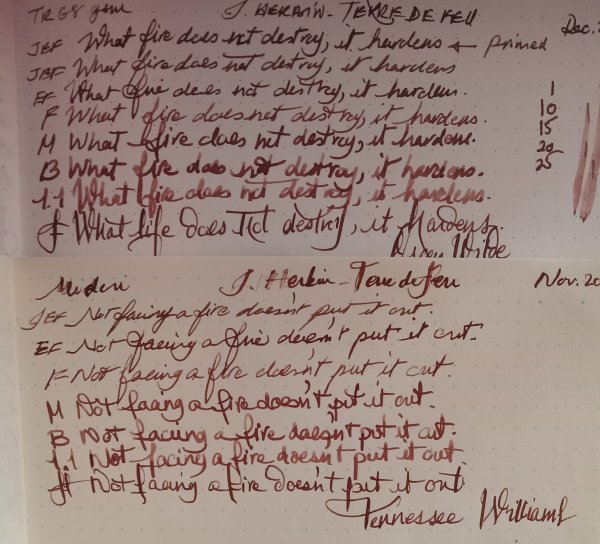 TRGS 90gsm J. HERBIN - TERRE DE FEU Dec. 2
JEF What fire does not destroy, it hardens ← primed
JBF What fire does not destroy, it hardens
EF What fire does not destroy, it hardens. 1
F What fire does not destroy, it hardens. 10
M What fire does not destroy, it hardens. 15
B What fire does not destroy, it hardens. 20
25
1.1 What fire does not destroy, it hardens.
ff What life does not destroy, it hardens.
Oscar Wilde
Midori J. Herbin - Terre de Feu Nov. 20
JEF Not facing a fire doesn't put it out.
EF Not facing a fire doesn't put it out.
F Not facing a fire doesn't put it out.
M Not facing a fire doesn't put it out.
B Not facing a fire doesn't put it out.
1.1 Not facing a fire doesn't put it out.
ff Not facing a fire doesn't put it out
Tennessee Williams